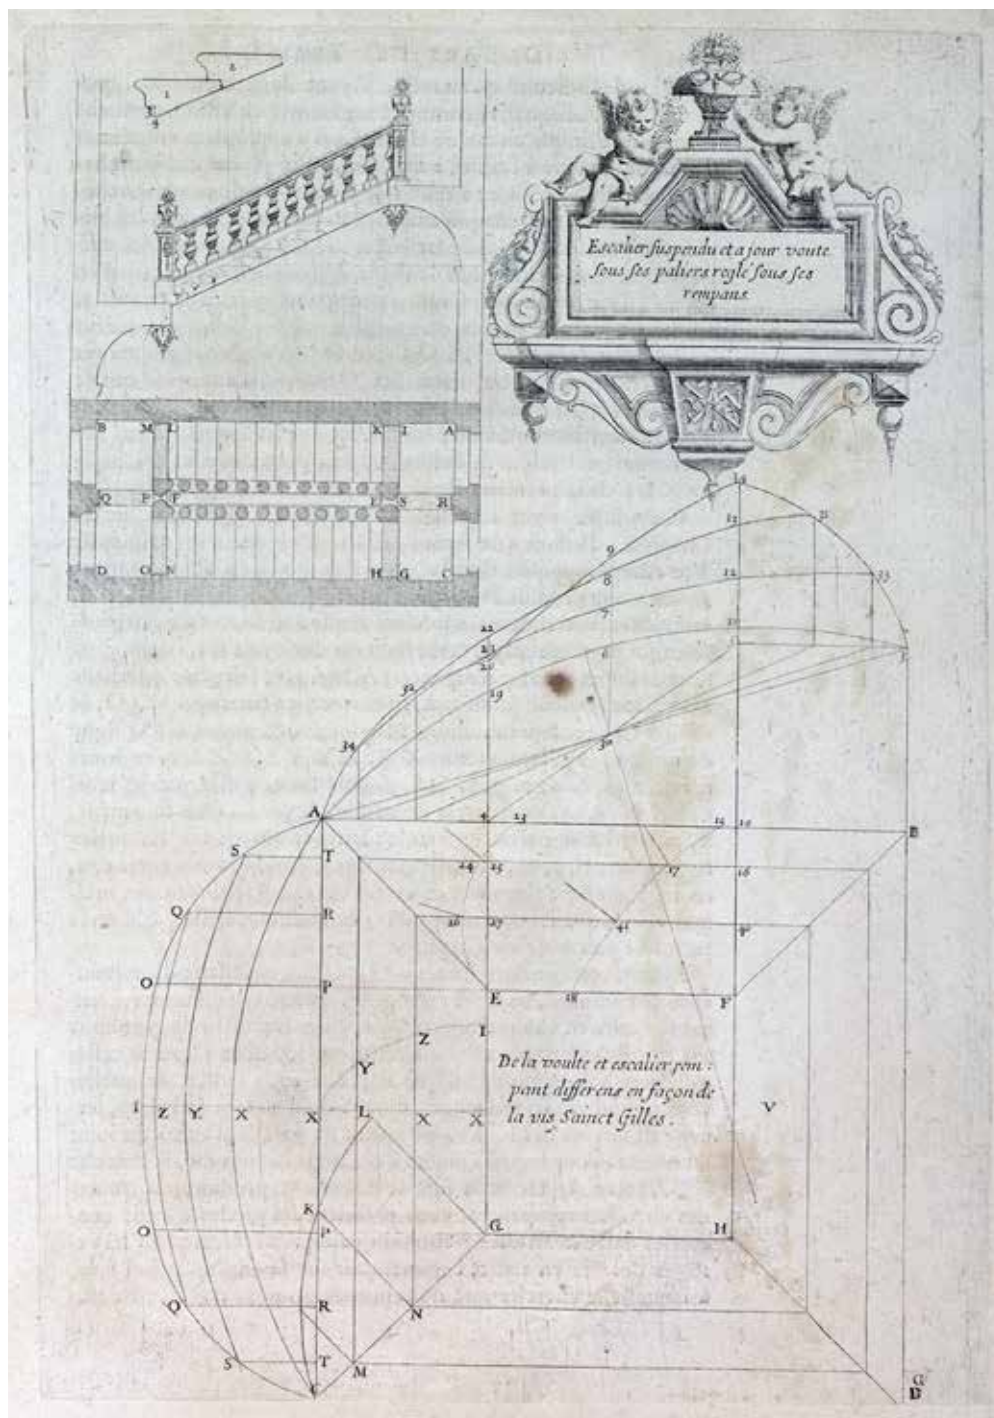 1 2
Escalier suspendu et a jour voute
sous ses paliers reglé sous ses
rempans
B M L K I A
Q P F E S R
D O N H G C
14
13 31
9
8 12 33
7
22 11
21
20 6
32 19
34 30
A 4 23 15 10 B
S T 24 25 17 16
Q R 26 27
O P E 18 F
I
Z
Y
De la voulte et escalier rem :
pant differens en façon de
la vis Sainct Gilles .
I Z Y X X L X X V
K
O P G H
Q R N
S T M
C G
D